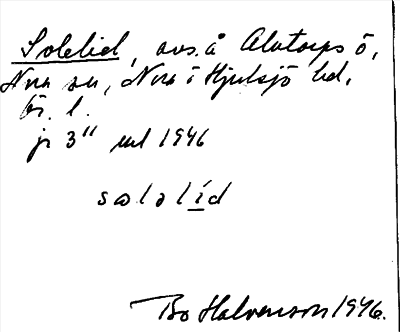 Solelid, avs. å Alntorps ö,
Nora sn, Nora i Hjulsjö bd,
Ör. l.
jr 3" utl 1946
sələlíd
Bo Halvarson 1946.